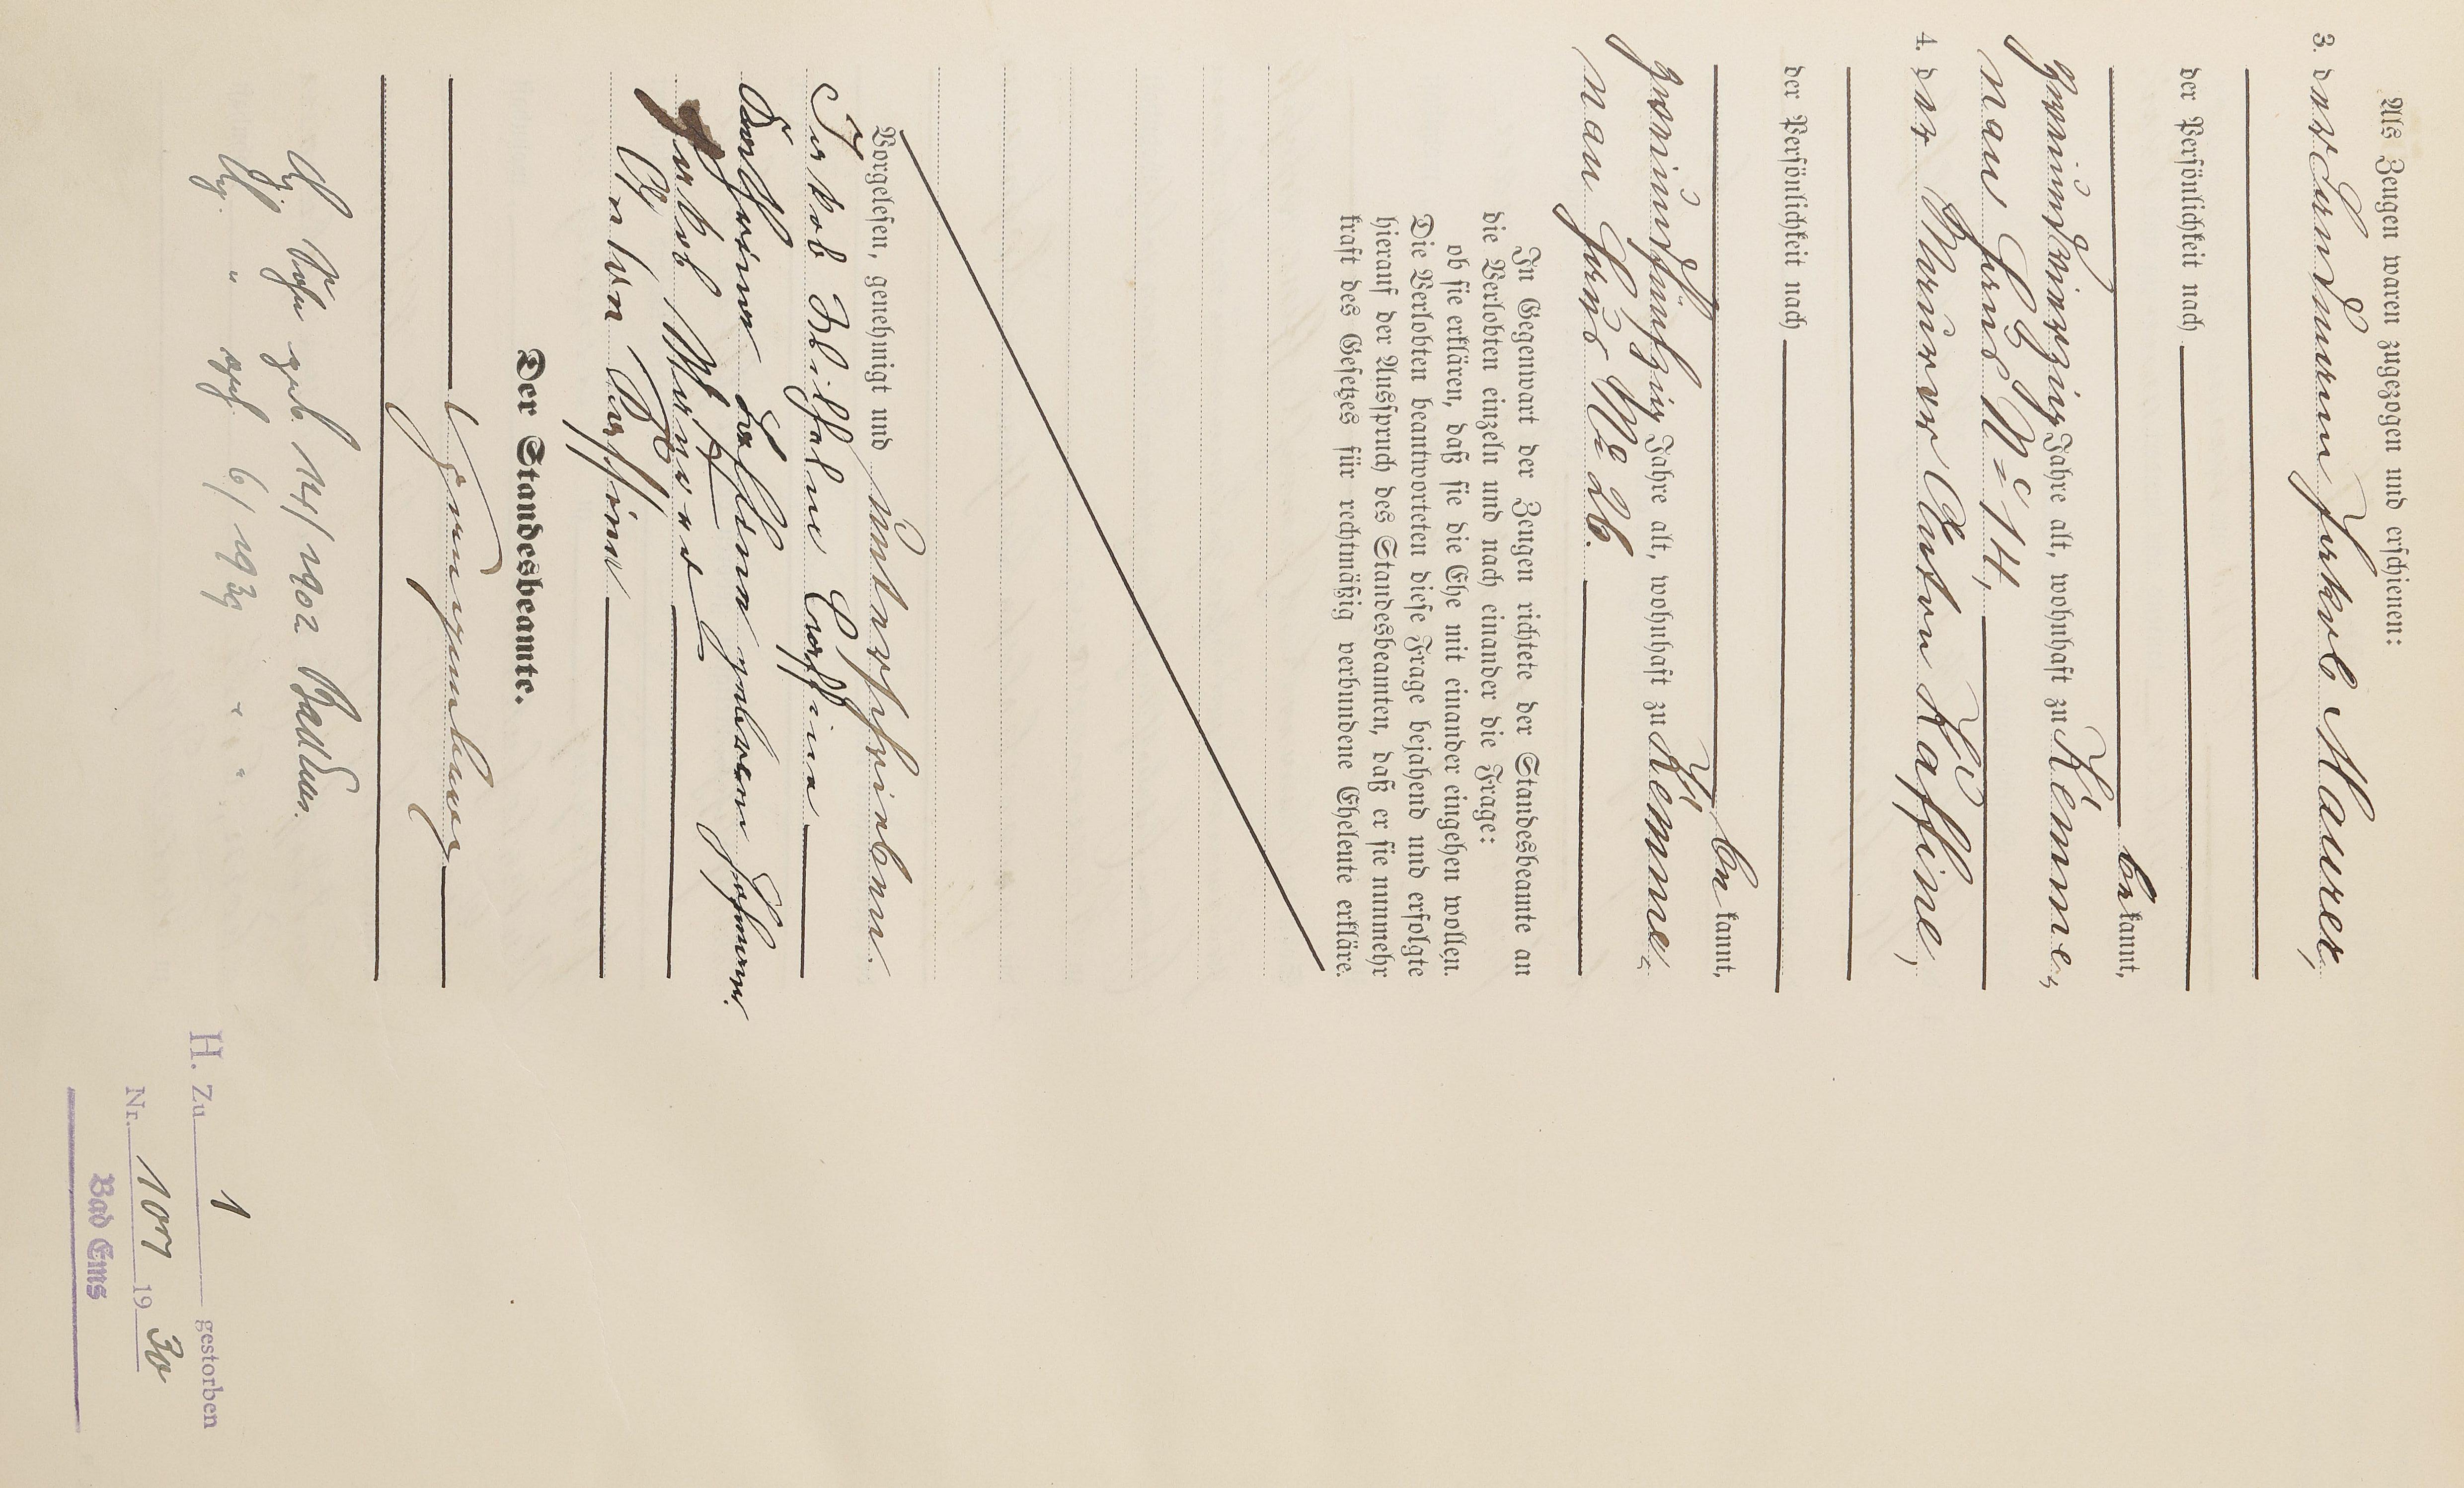 Als Zeugen waren zugezogen und erschienen:
3. der Landmann Jakob Maurer,
der Persönlichkeit nach
be kannt,
zweiundvierzig Jahre alt, wohnhaft zu Kemme-
nau Haus No 14,
4. der Maurer Anton Kaffine,
der Persönlichkeit nach
be kannt,
zweiundfünfzig Jahre alt, wohnhaft zu Kemme-
nau Haus No 26.
In Gegenwart der Zeugen richtete der Standesbeamte an
die Verlobten einzeln und nach einander die Frage:
ob sie erklären, daß sie die Ehe mit einander eingehen wollen.
Die Verlobten beantworteten diese Frage bejahend und erfolgte
hierauf der Ausspruch des Standesbeamten, daß er sie nunmehr
kraft des Gesetzes für rechtmäßig verbundene Eheleute erkläre.
Vorgelesen, genehmigt und unterschrieben.
Jakob Wilhelm Kaffine
Kaffine geborene
Jakob Maurer
Anton Kaffine
Der Standesbeamte.
geb. 14/1902
6/1939
H. Zu 1 gestorben
Nr. 107 19 30
Bad Ems